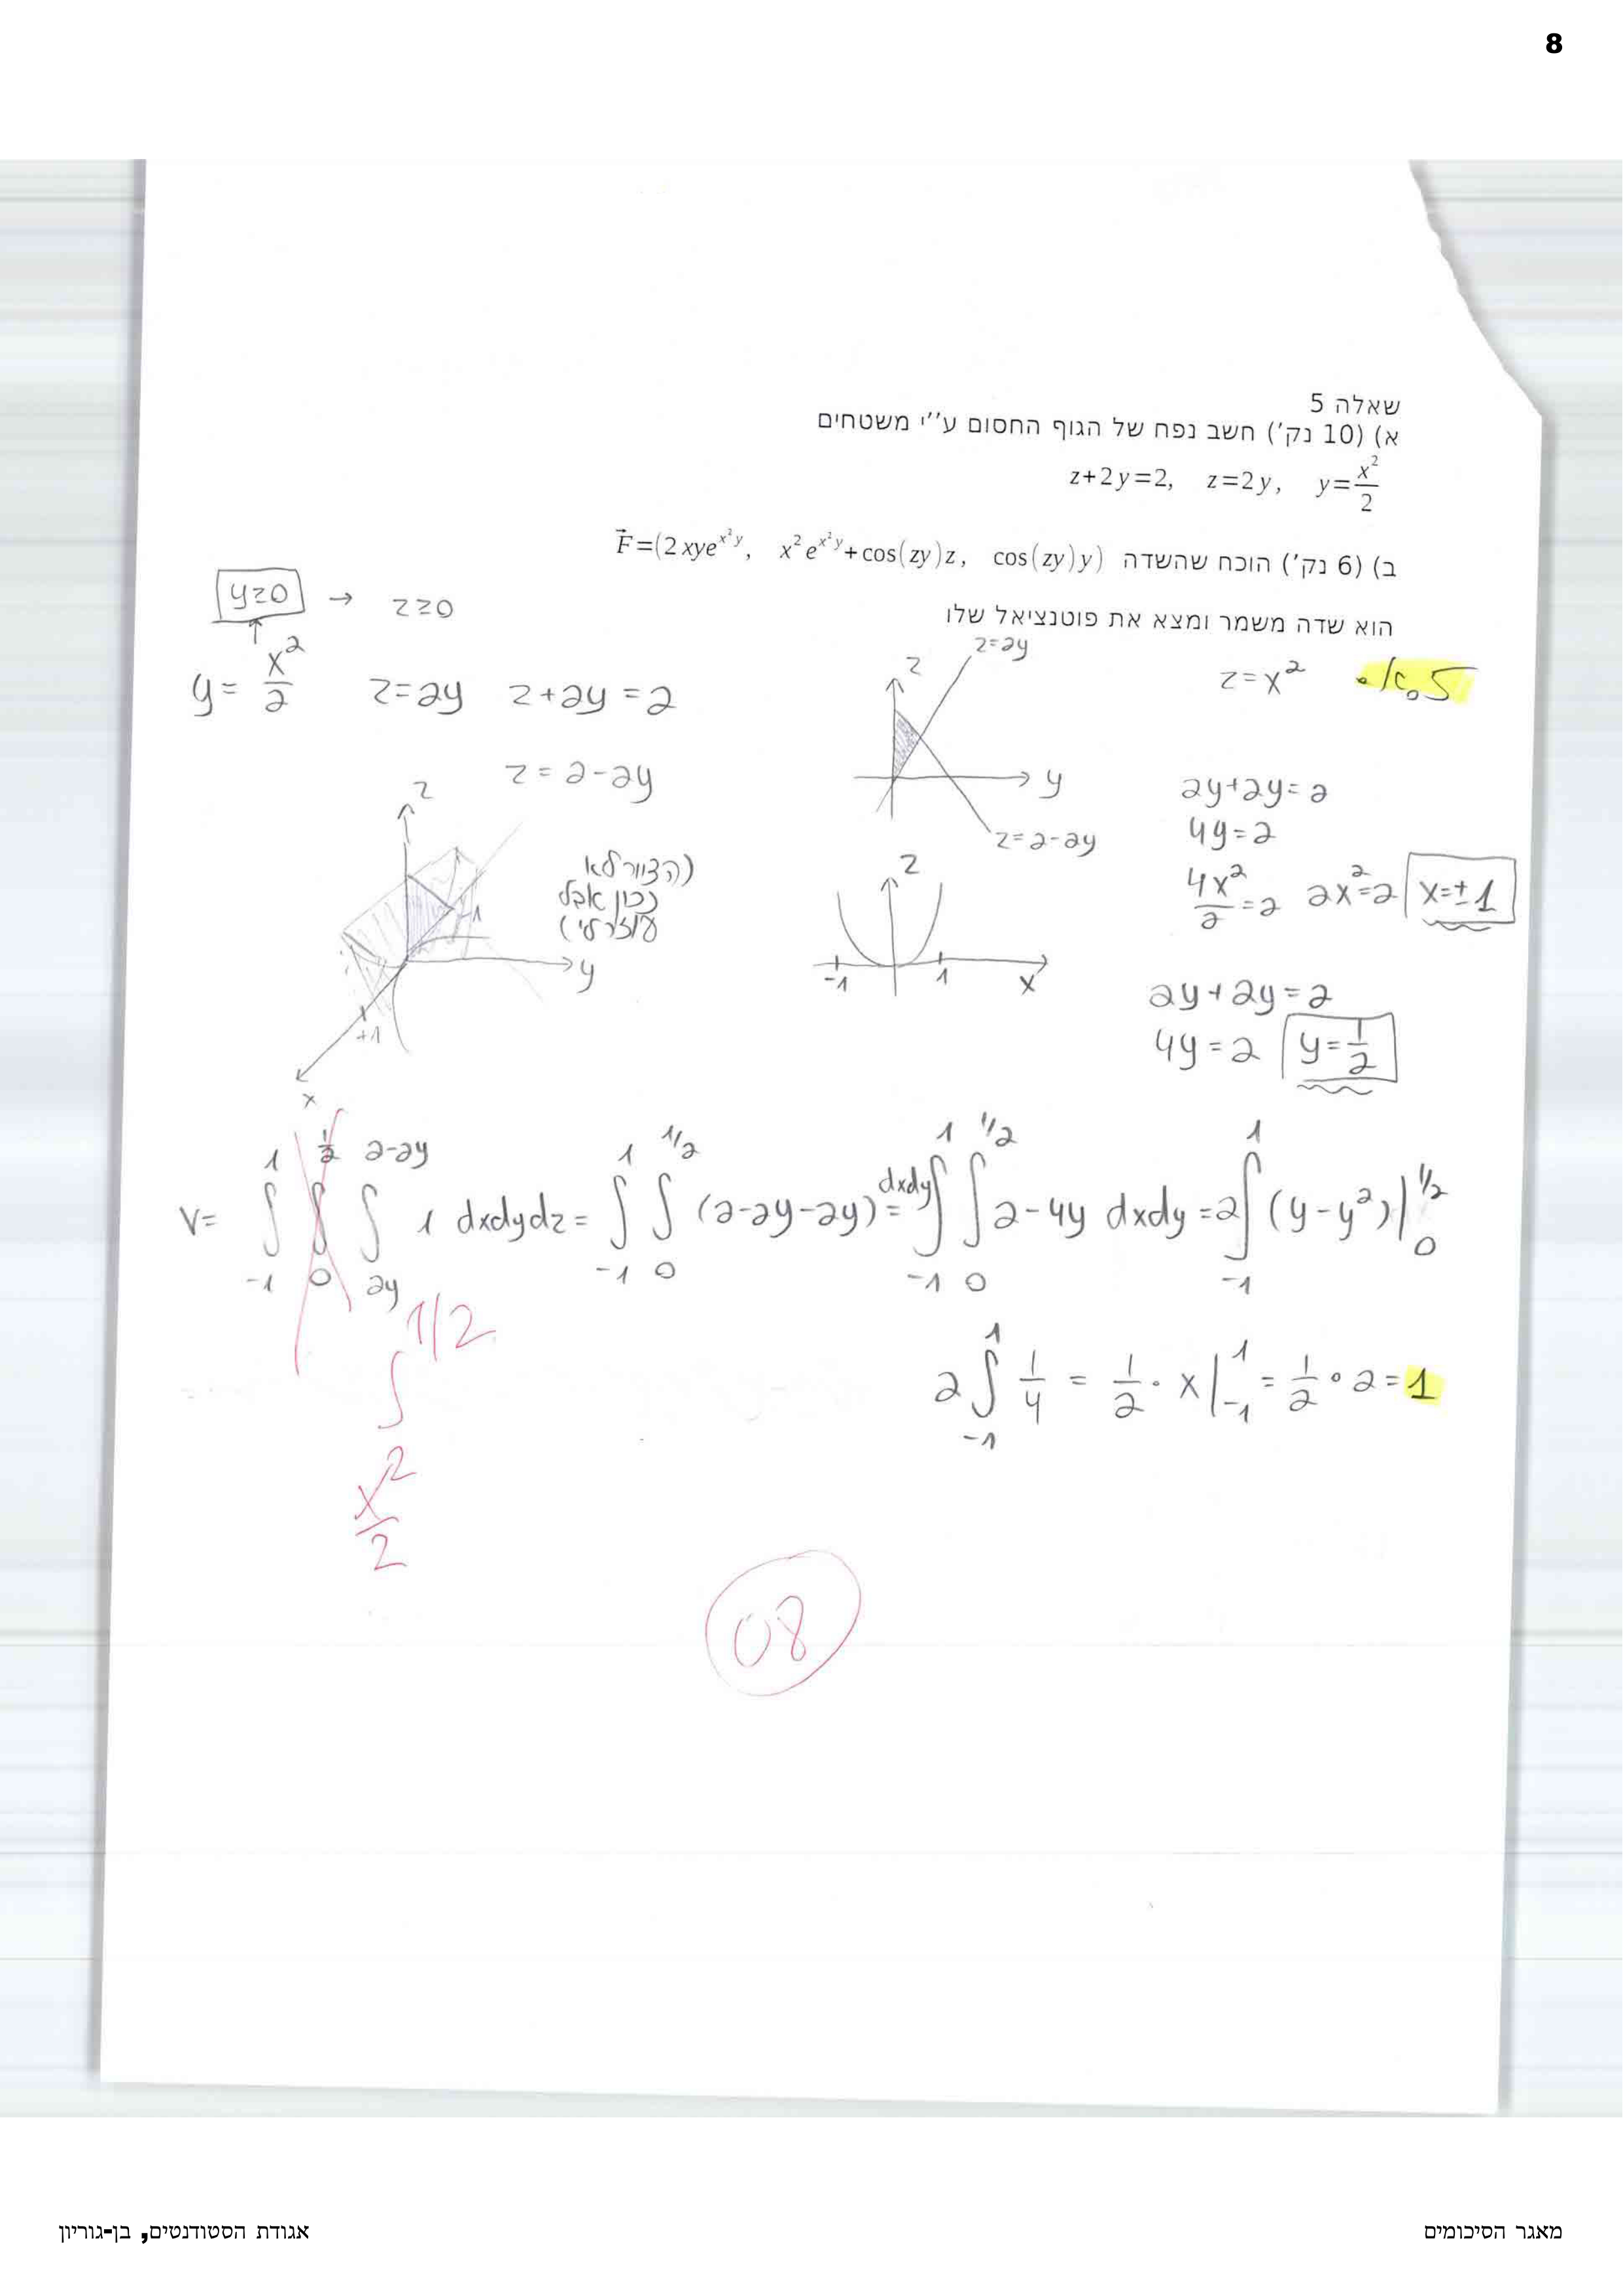 8
שאלה 5
א) (10 נק') חשב נפח של הגוף החסום ע''י משטחים
z+2y=2, z=2y, y=x²/2
ב) (6 נק') הוכח שהשדה F⃗=(2xye^{x²y}, x²e^{x²y}+cos(zy)z, cos(zy)y)
הוא שדה משמר ומצא את פוטנציאל שלו
y≥0 → z≥0
↑
y=x²/2 z=2y z+2y=2
z=2-2y
5.א.
z=x²
z
z=2y
y
z=2-2y
2y+2y=2
4y=2
4x²/2=2 2x²=2 x=±1
2y+2y=2
4y=2 y=1/2
z
-1
y
+1
x
(הציור לא
נכון אבל
עוזר לי)
z
-1 1 x
V= ∫_{-1}^{1} ∫_{0}^{1/2} ∫_{2y}^{2-2y} 1 dxdydz = ∫_{-1}^{1} ∫_{0}^{1/2} (2-2y-2y) dxdy = ∫_{-1}^{1} ∫_{0}^{1/2} 2-4y dxdy = 2∫_{-1}^{1} (y-y²)|_{0}^{1/2}
∫_{x²/2}^{1/2}
2∫_{-1}^{1} 1/4 = 1/2 · x|_{-1}^{1} = 1/2 · 2 = 1
08
מאגר הסיכומים
אגודת הסטודנטים, בן-גוריון